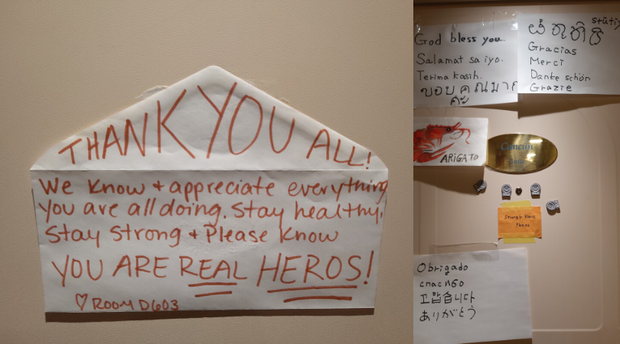 THANK YOU ALL!
We know + appreciate everything
you are all doing. Stay healthy,
Stay strong + Please know
YOU ARE REAL HEROS!
♡ ROOM D603
God bless you.
Salamat sa iyo.
Terima kasih.
ขอบคุณมาก
ค่ะ
Gracias
Merci
Danke schön
Grazie
ARIGATO
Obrigado
спасибо
고맙습니다
ありがとう